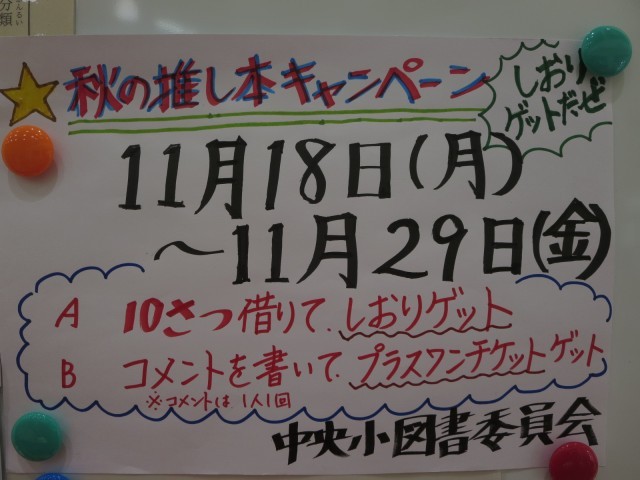 ぶんるい
分類
秋の推し本キャンペーン
しおり
ゲットだぜ
11月18日(月)
～11月29日(金)
A 10さつ借りて、しおりゲット
B コメントを書いて、プラスワンチケットゲット
※コメントは1人1回
中央小図書委員会